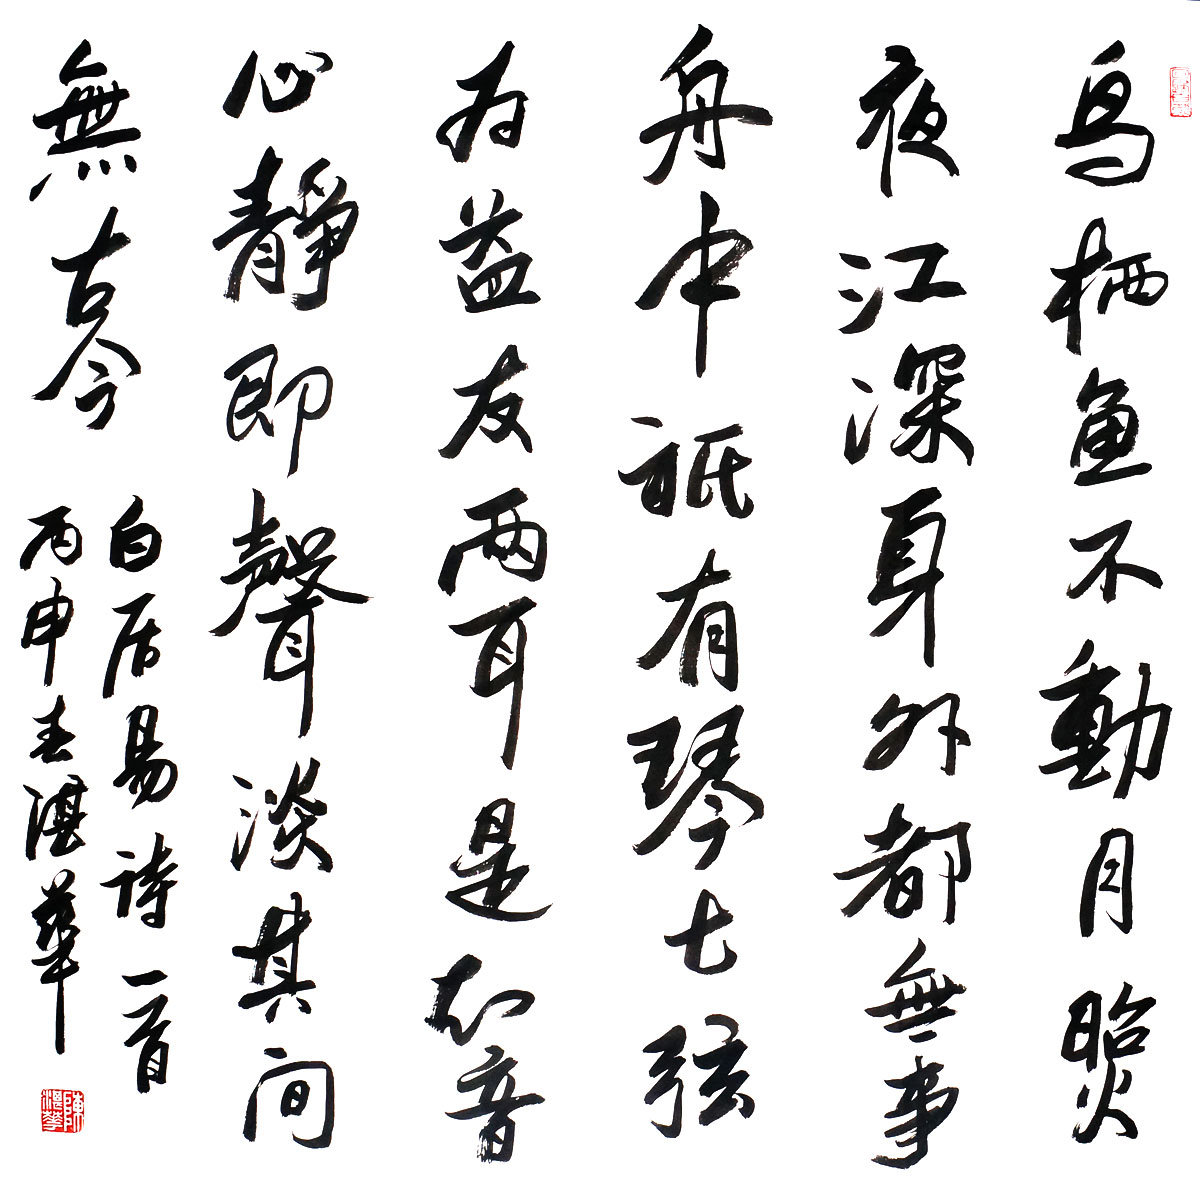 鳥栖魚不動月照
夜江深身外都無事
舟中祗有琴七弦
為益友兩耳是知音
心靜即聲淡其間
無古今
白居易詩一首
丙申春湛華
陳湛華